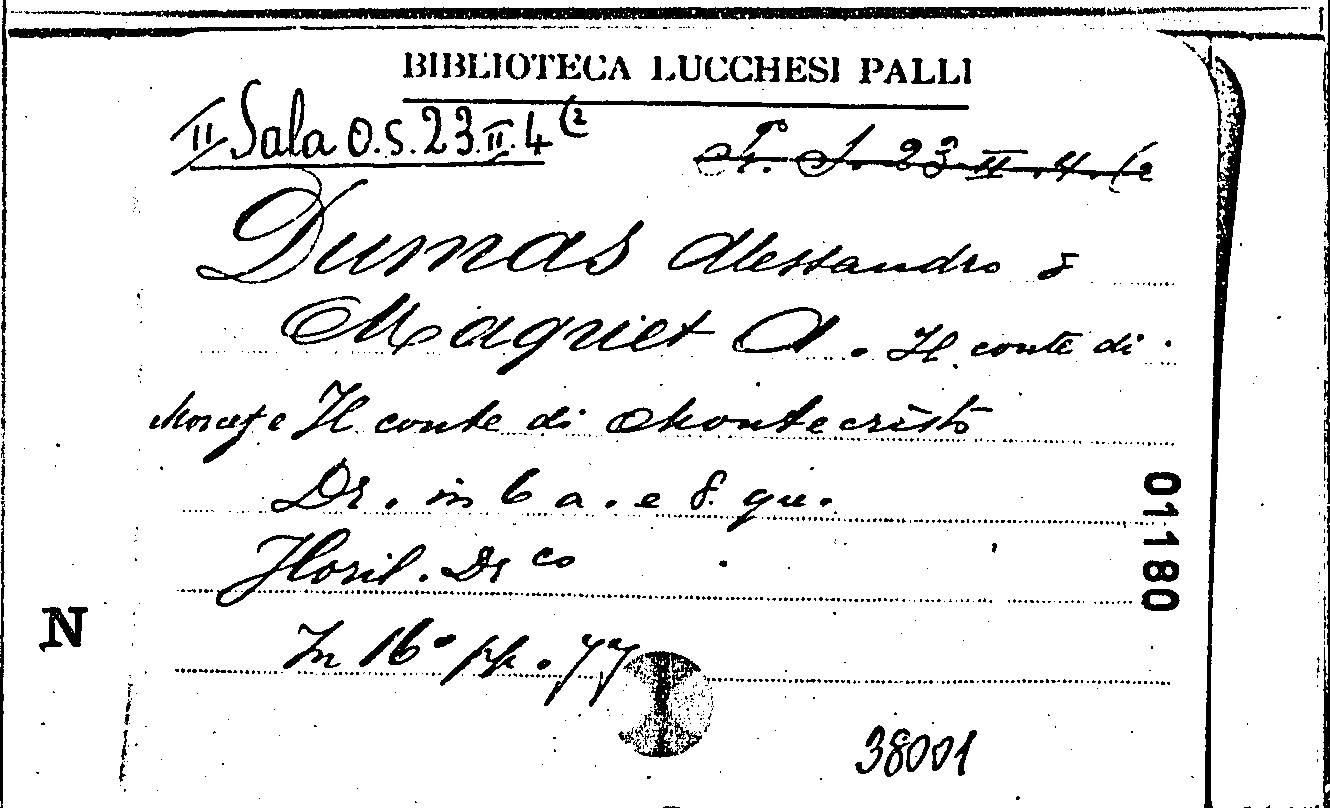 BIBLIOTECA LUCCHESI PALLI
II Sala O.S.23.II.4(2
Dumas Alessandro &
Maquiet A. Il conte di
Morcef e Il conte di Montecristo
Dr. in 6 a. e 8. qu.
Floril. Dr co
In 16° pp. 77
01180
N
38001